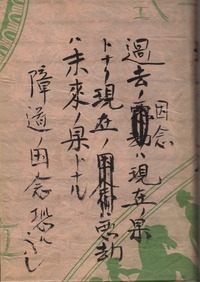 過去ノ因念ハ現在ノ果
トナリ現在ノ悪劫
ハ未来ノ果トナル
障道ノ因念恐ルベシ